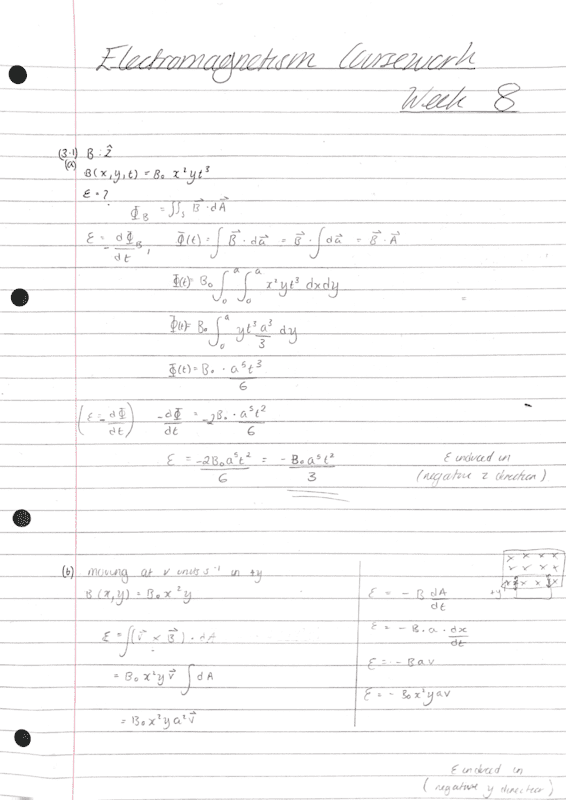 Electromagnetism Cursework
Week 8
(3.1) B : ẑ
(a)
B(x,y,t) = B₀ x²yt³
ε = ?
Φ_B = ∬_S B⃗ · dA⃗
ε = -dΦ_B/dt, Φ(t) = ∫ B⃗ · da⃗ = B⃗ · ∫ da⃗ = B⃗ · A⃗
Φ(t) = B₀ ∫₀ᵃ ∫₀ᵃ x²yt³ dxdy
Φ(t) = B₀ ∫₀ᵃ yt³ a³/3 dy
Φ(t) = B₀ · a⁵t³/6
(ε = -dΦ/dt) -dΦ/dt = -2B₀ · a⁵t²/6
ε = -2B₀a⁵t²/6 = -B₀a⁵t²/3
ε induced in
(negative z direction)
(b) moving at v units s⁻¹ in +y
B(x,y) = B₀ x²y
ε = ∫(v⃗ × B⃗) · dA
= B₀ x²y v⃗ ∫ dA
= B₀ x²y a² v⃗
x x x x
x x x
+y
ε = -B dA/dt
ε = -B · a · dx/dt
ε = -Bav
ε = -B₀x²yav
ε induced in
(negative y direction)